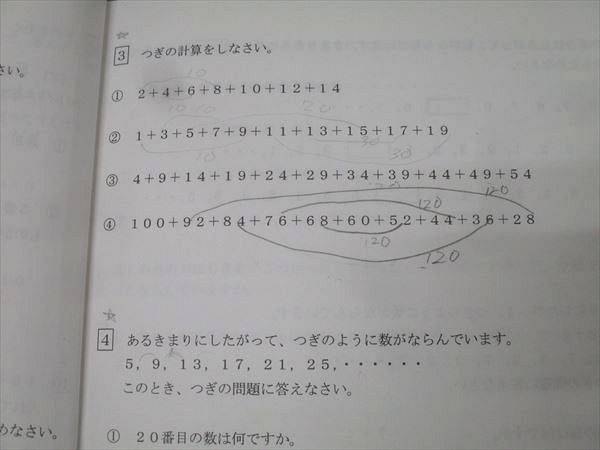 さい。
☆
3 つぎの計算をしなさい。
10
① 2+4+6+8+10+12+14
10 10 20
② 1+3+5+7+9+11+13+15+17+19
10 30 30
③ 4+9+14+19+24+29+34+39+44+49+54
120 120
120
④ 100+92+84+76+68+60+52+44+36+28
120
120
☆
4 あるきまりにしたがって、つぎのように数がならんでいます。
5, 9, 13, 17, 21, 25, ・・・・・・
このとき、つぎの問題に答えなさい。
めなさい。
① 20番目の数は何ですか。